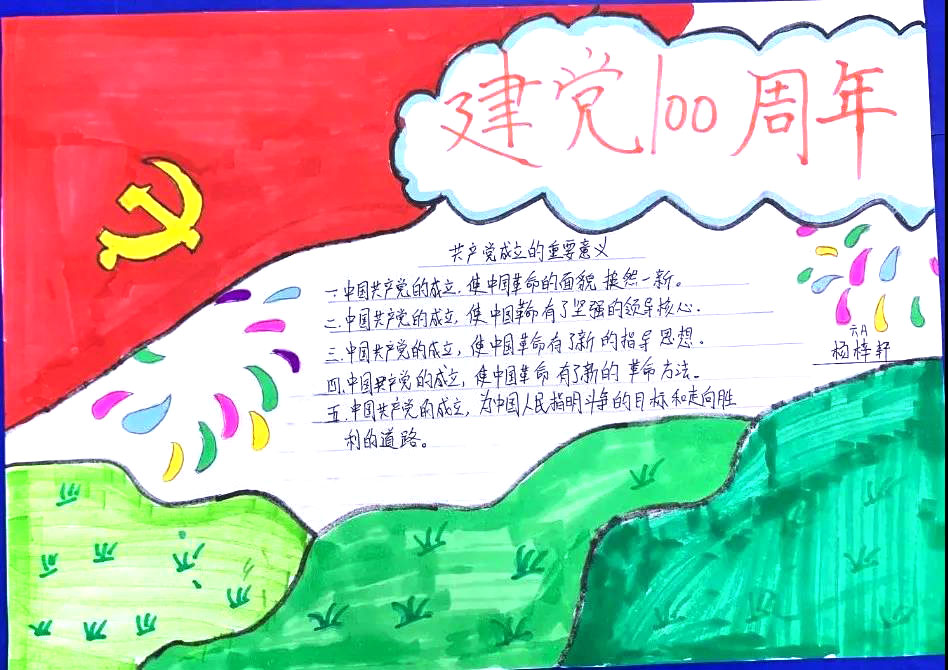 建党100周年
共产党成立的重要意义
一.中国共产党的成立,使中国革命的面貌 换然一新。
二.中国共产党的成立,使中国革命有了坚强的领导核心.
三.中国共产党的成立,使中国革命有了新的指导思想。
四.中国共产党的成立,使中国革命有了新的革命方法。
五.中国共产党的成立,为中国人民指明斗争的目标和走向胜
利的道路。
六A
杨梓轩